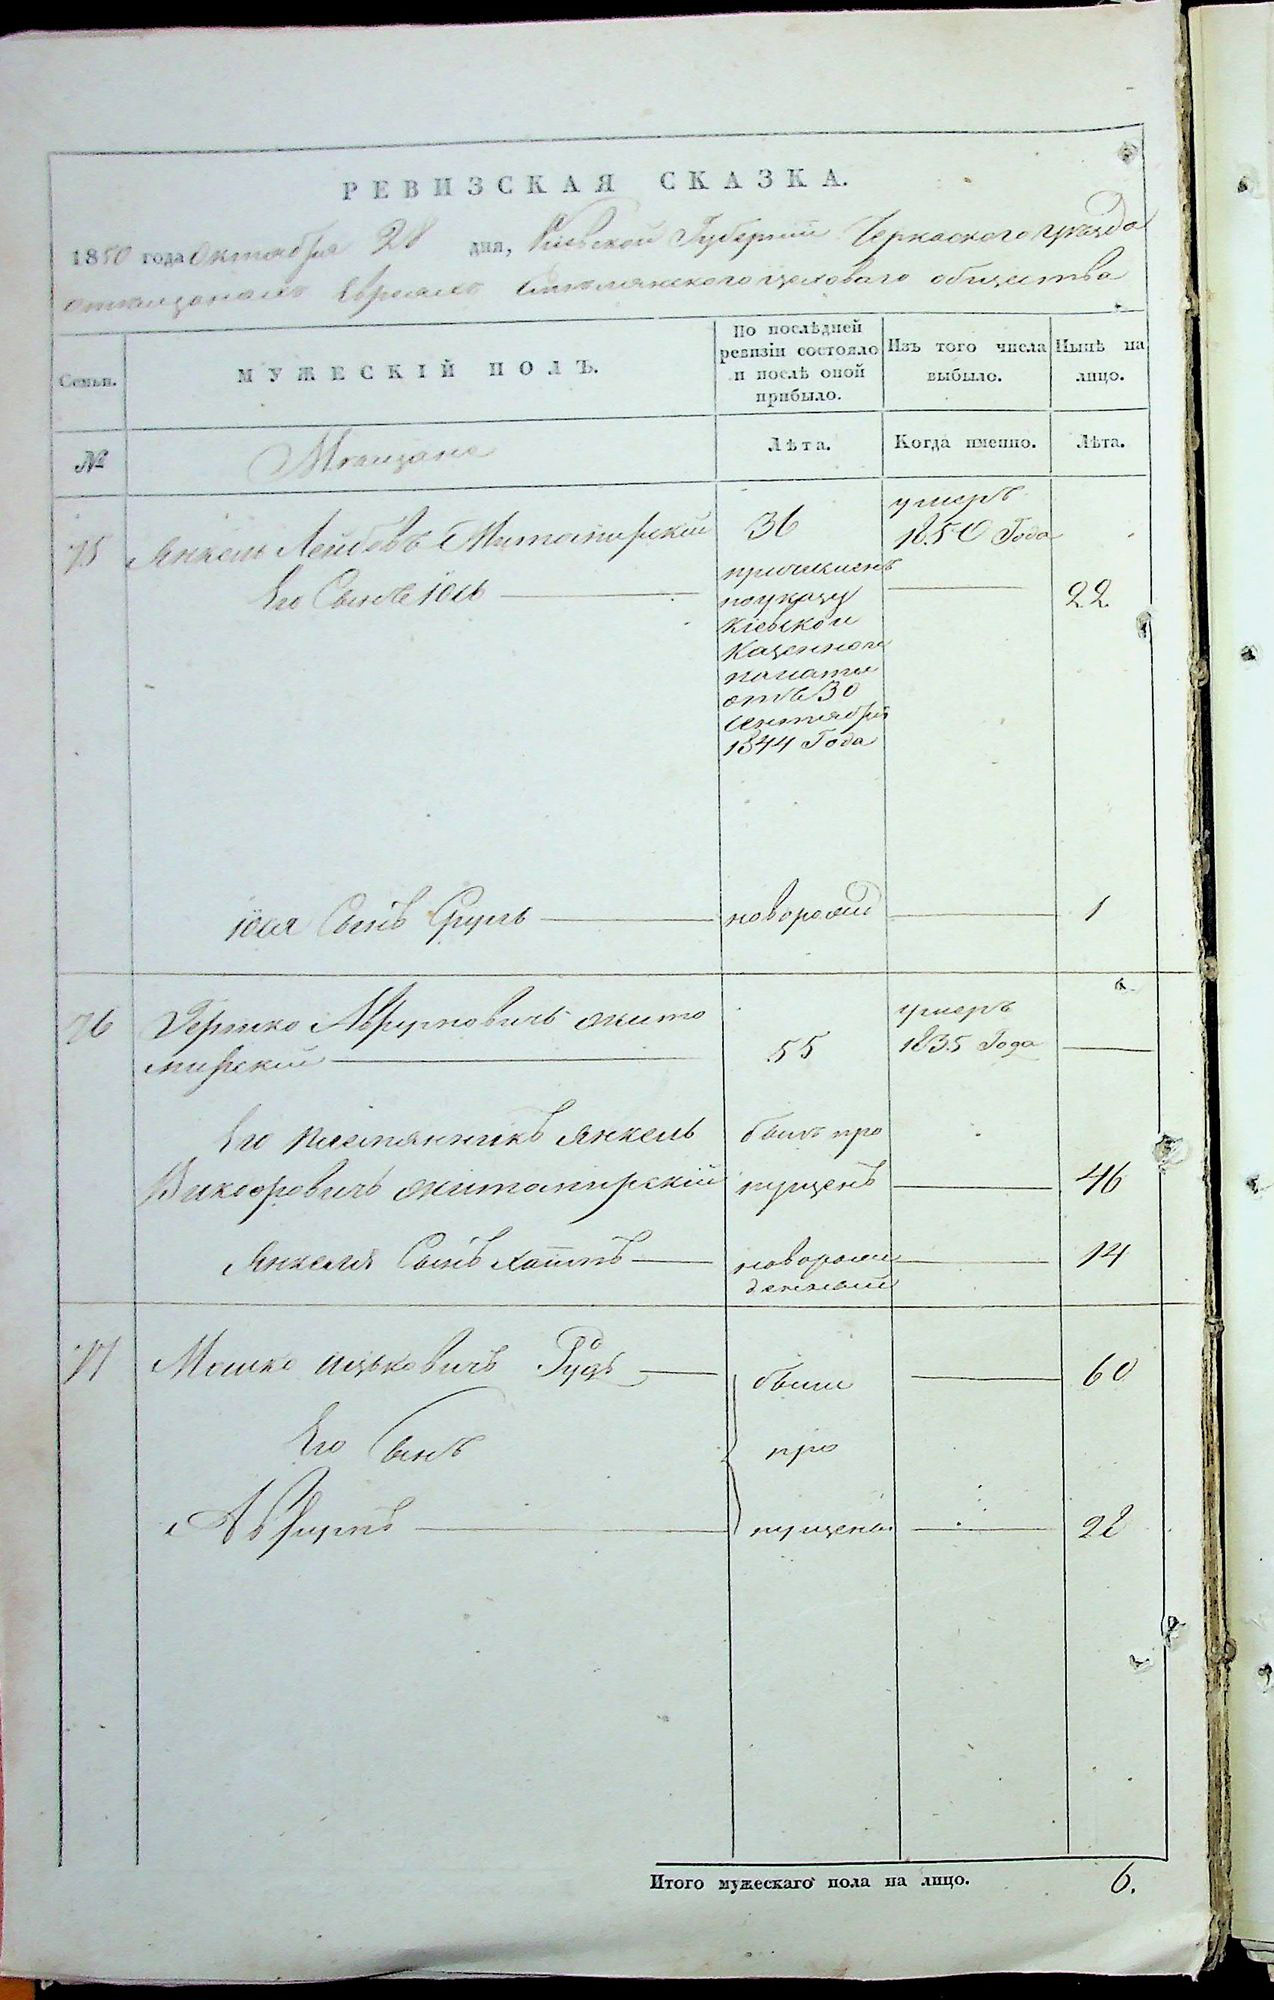 РЕВИЗСКАЯ СКАЗКА.
1850 года Октября 28 дня, Кіевской Губерніи Черкаского уезда
мещанахъ Евреяхъ цеховаго общества
Семьи.
МУЖЕСКІЙ ПОЛЪ.
По послѣдней ревизіи состояло и послѣ оной прибыло.
Изъ того числа выбыло.
Нынѣ на лицо.
№
Мещане
Лѣта.
Когда именно.
Лѣта.
75 Янкель Лейбовъ Житомирскій 36 умеръ 1850 Года
Его Сынъ Іось 22
причисленъ
по указу
Кіевской
Казенной
палаты
отъ 30
Сентября
1844 Года
Іося Сынъ Сруль новорожд 1
76 Гершко Аврумовичъ жито
мирскій 55 умеръ 1835 Года
Его племянникъ Янкель былъ про
житомирскій пущенъ 46
Янкеля Сынъ Хаимъ новорож
денный 14
77 Мошко Ицьковичъ Рудъ были 60
Его Сынъ про
Аврумъ пущены 22
Итого мужескаго пола на лицо. 6.